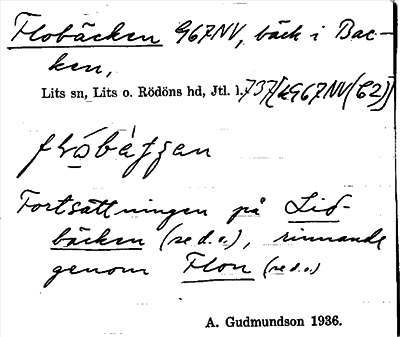 Flobäcken 967NV, bäck i Bac-
ken,
Lits sn, Lits o. Rödöns hd, Jtl. l. 737[&967NV(C2)]
Fortsättningen på Lid-
bäcken (se d. o.), rinnande
genom Flon (se d. o.)
A. Gudmundson 1936.